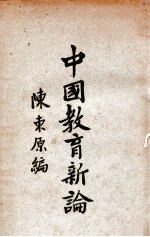 中國教育新論
陳東原編